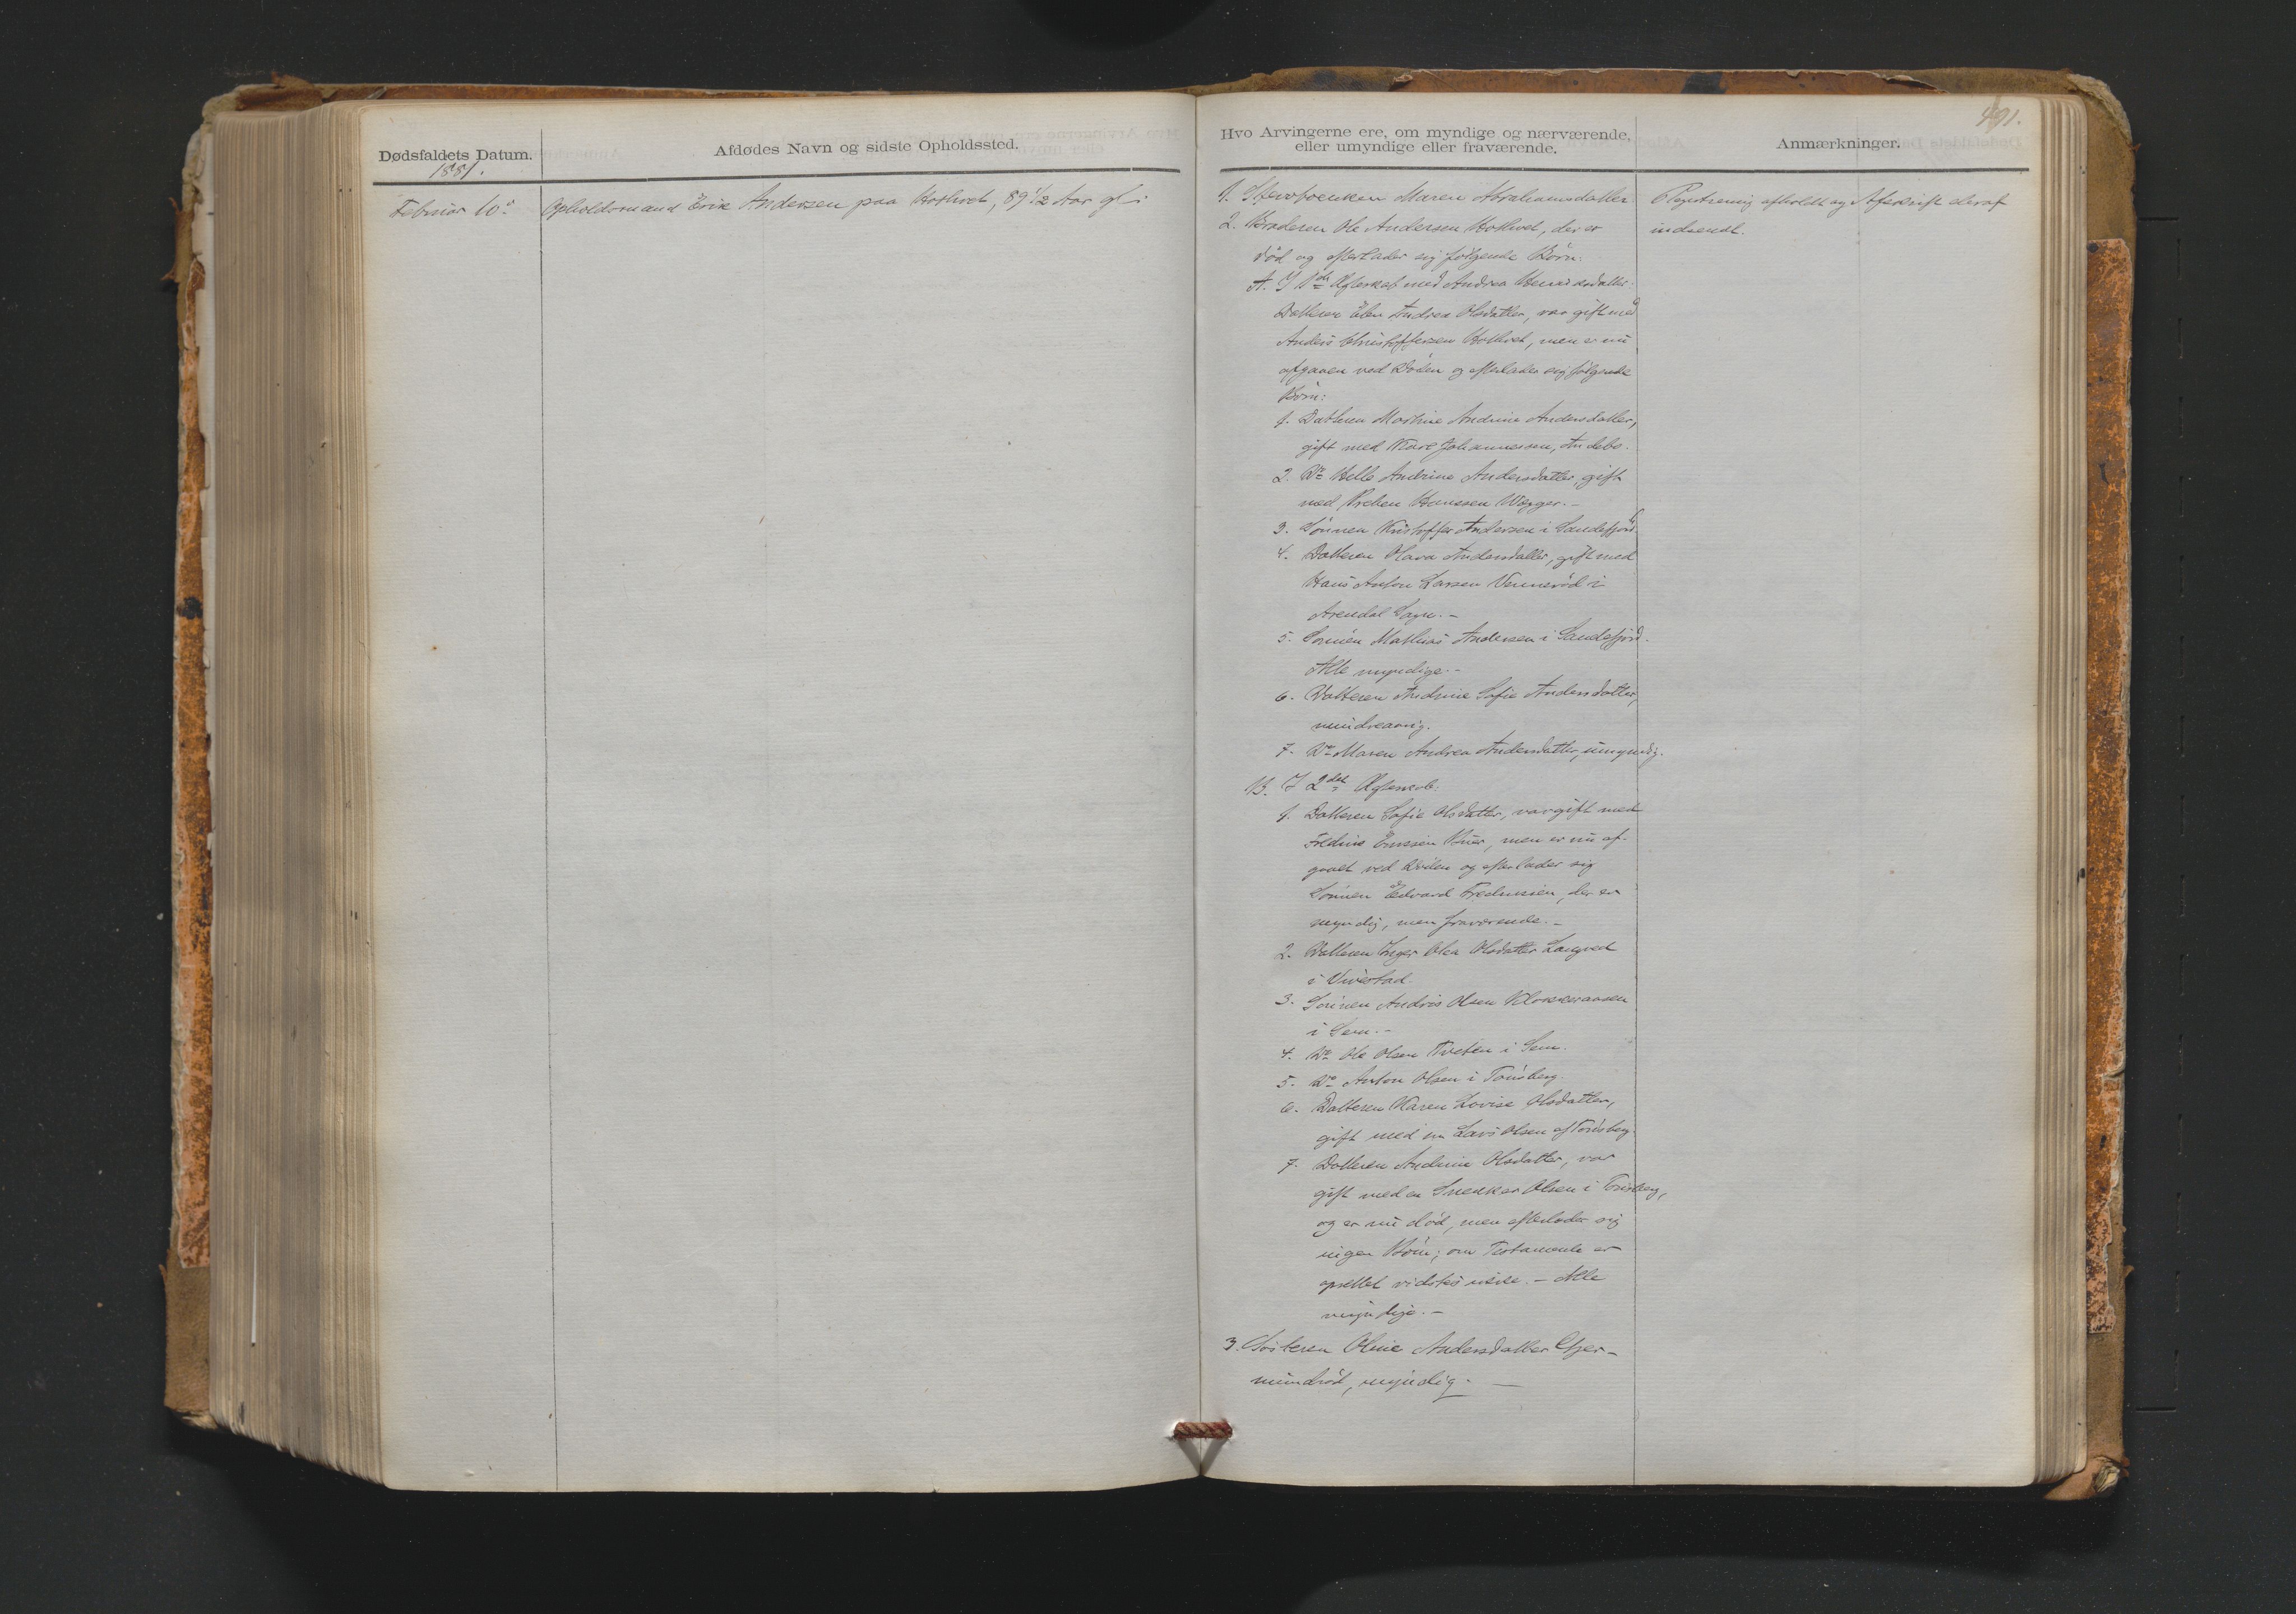 491.
Dødsfaldets Datum.
Afdødes Navn og sidste Opholdssted.
Hvo Arvingerne ere, om myndige og nærværende,
eller umyndige eller fraværende.
Anmærkninger.
1881.
Februar 10.
Opholdsmand Erik Andersen paa Holtvet, 89 1/2 Aar gl.
1. Stervboenken Maren Abrahamsdatter
2. Broderen Ole Andersen Holtvet, der er
død og efterlader sig følgende Børn:
A. I 1ste Ægteskab med Andrea Henriksdatter.
Datteren Elen Andrea Olsdatter, var gift med
Anders Christoffersen Holtvet, men er nu
afgaaen ved Døden og efterlader sig følgende
Børn:
1. Datteren Marthine Andrine Andersdatter,
gift med Johannessen, Andebo.
2. Do Helle Andrine Andersdatter, gift
med Hanssen
3. Sønnen Kristoffer Andersen i Sandefjord.
4. Datteren Olava Andersdatter, gift med
Hans Anton Larsen Vennerød i
Arendal Sogn.-
5. Sønnen Mathias Andersen i Sandefjord.
Alle myndige.-
6. Datteren Andrine Sofie Andersdatter,
mindreaarig.
7. Do Maren Andrea Andersdatter, umyndig.
B. I 2det Ægteskab:
1. Datteren Sofie Olsdatter, var gift med
men er nu af-
gaaet ved Døden og efterlader sig
Sønnen Edvard der er
myndig, men fraværende.-
2. Datteren Inger Olea Olsdatter
i Vivestad.
3. Sønnen Andreas Olsen
i Sem.-
4. Do Ole Olsen Tveten i Sem.
5. Do Anton Olsen i Tønsberg.
6. Datteren Karen Lovise Olsdatter,
gift med en Lars Olsen af Tønsberg.
7. Datteren Andrine Olsdatter, var
gift med en Snekker Olsen i Tønsberg,
og er nu død, men efterlader sig
ingen Børn; om Testamente er
oprettet vidstes ikke.- Alle
myndige.-
3. Søsteren Oline Andersdatter Gjer-
mundrød, myndig.-
Registrering afholdt og Afskrift deraf
indsendt.